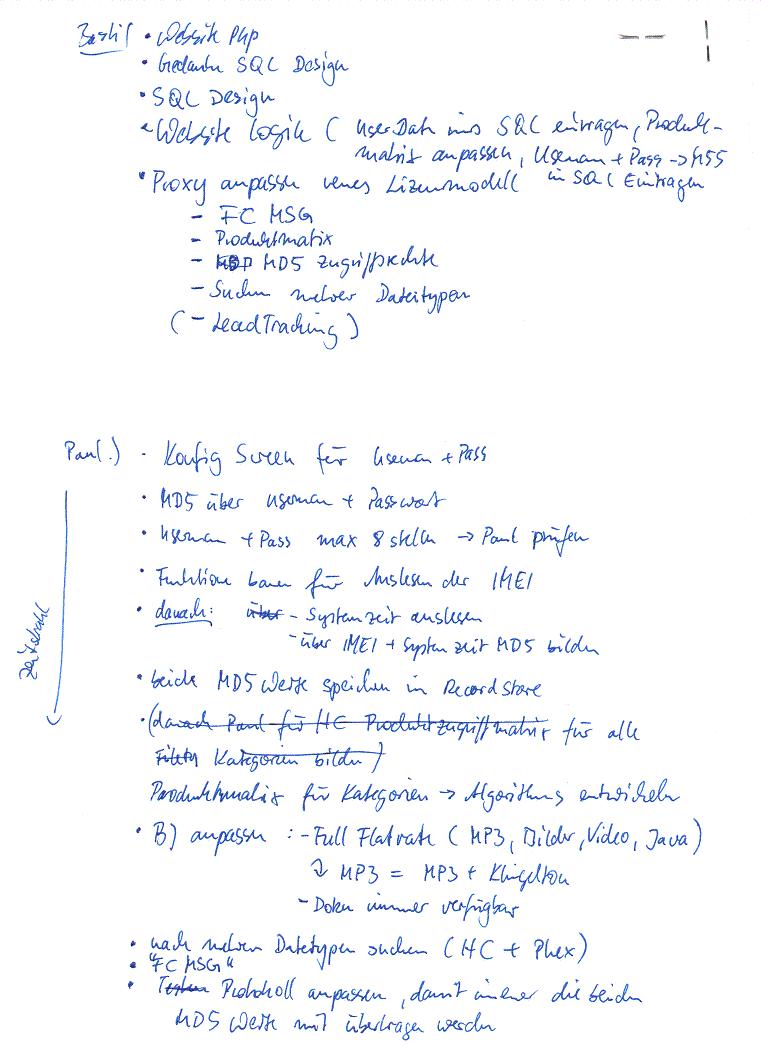 Basti
• Website PHP
• Gedanken SQL Design
• SQL Design
• Website Logik ( UserDaten ins SQL eintragen, Produkt-
matrix anpassen, Usernam + Pass →
in SQL Eintragen
• Proxy anpassen neues Lizenzmodell
– FC MSG
– Produktmatrix
– MD5 Zugriffsrechte
– Suchen mehrer Dateitypen
( – LeadTracking )
Paul.) • Konfig Screen für Usernam + Pass
• MD5 über usernam + Passwort
• Usernam + Pass max 8 stellen → Paul prüfen
• Funktion bauen für Auslesen der IMEI
• danach: über – Systemzeit auslesen
– über IMEI + System zeit MD5 bilden
Zeitstrahl
• beide MD5 Werte speichern in Recordstore
• (danach Paul für HC Produktzugriffmatrix für alle
Filetyp Kategorien bilden)
Produktmatrix für Kategorien → Algorithmus entwickeln
• B) anpassen : – Full Flatrate ( MP3, Bilder, Video, Java )
↳ MP3 = MP3 + Klingelton
– Doku immer verfügbar
• nach mehren Dateitypen suchen ( HC + Phex )
• "FC MSG"
• Testen Protokoll anpassen, damit immer die beiden
MD5 Werte mit übertragen werden